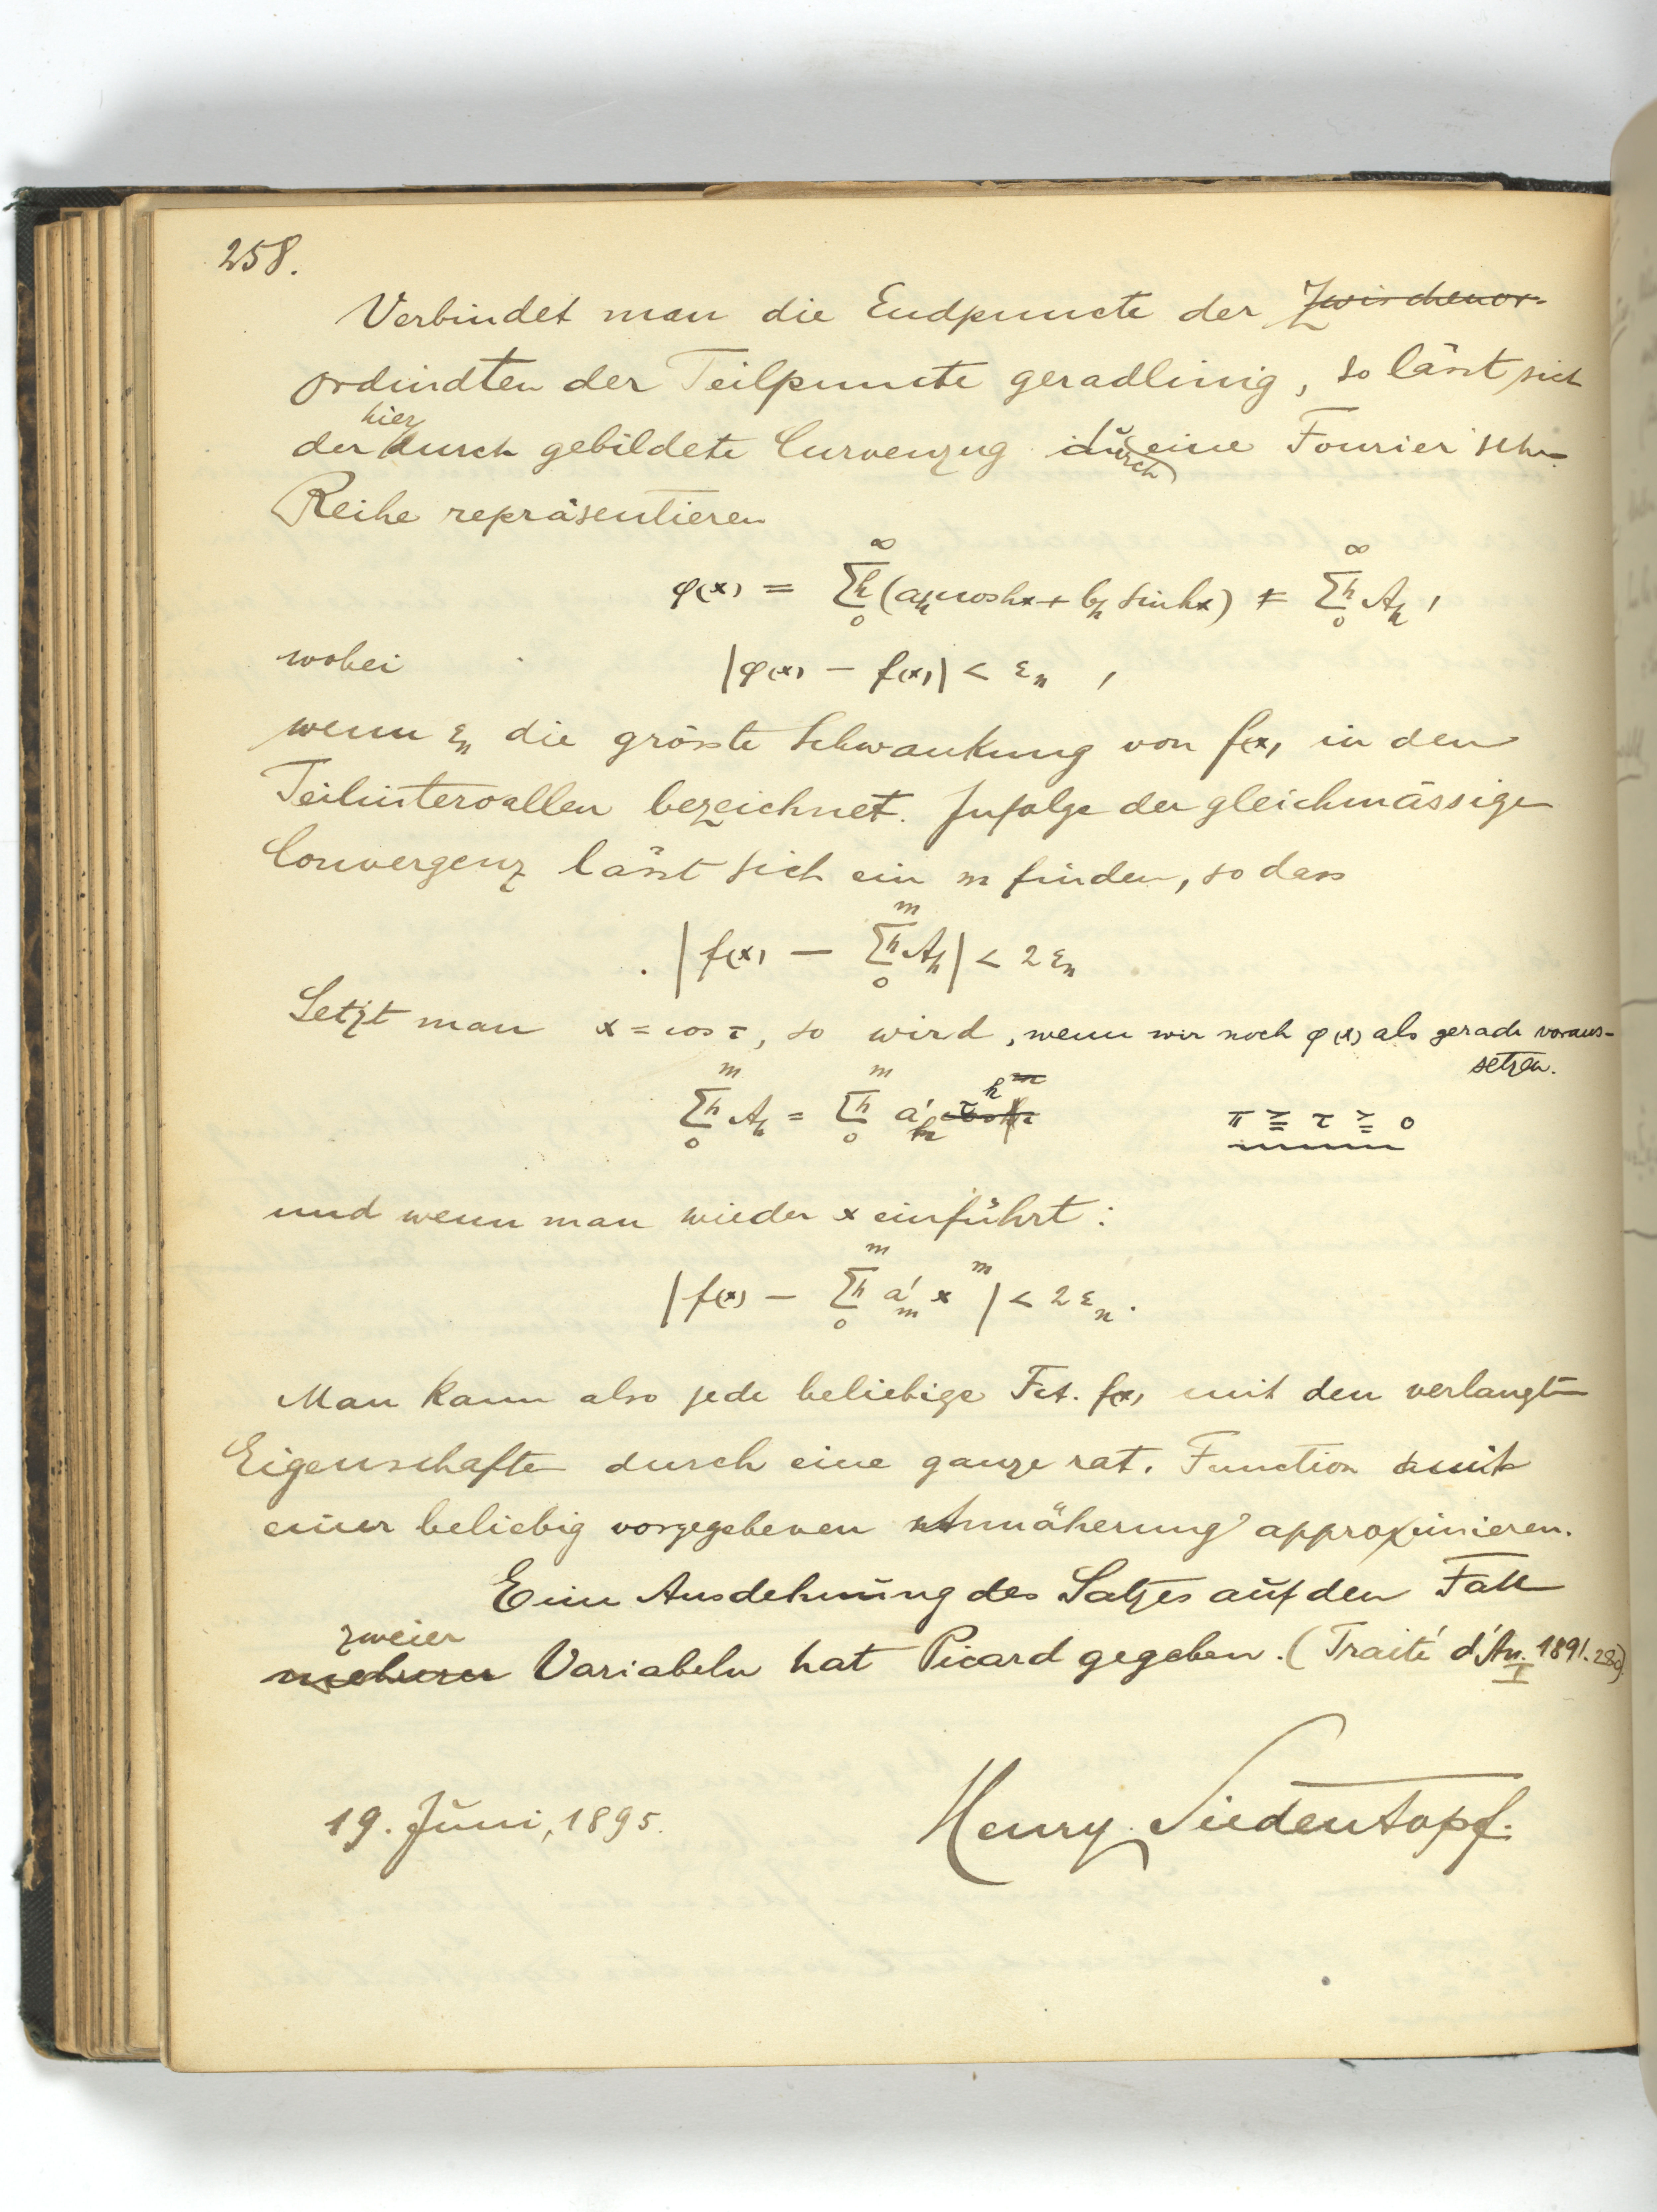 258.
Verbindet man die Endpuncte der Zwischenor-
ordinaten der Teilpuncte geradlinig, so lässt sich
der hierdurch gebildete Curvenzug durch eine Fourier'sche
Reihe repräsentieren
φ(x) = ∑h (a_h cos hx + b_h sin hx) = ∑h A_h,
wobei |φ(x) − f(x)| < ε_n ,
wenn ε_n die grösste Schwankung von f(x) in den
Teilintervallen bezeichnet. Zufolge der gleichmässigen
Convergenz lässt sich ein m finden, so dass
|f(x) − ∑h A_h| < 2 ε_n
Setzt man x = cos τ, so wird, wenn wir noch φ(x) als gerade voraus-
setzen.
∑h A_h = ∑h a'_h τ^h π ≧ τ ≧ 0
und wenn man wieder x einführt:
|f(x) − ∑h a'_m x^m| < 2 ε_n.
Man kann also jede beliebige Fct. f(x) mit den verlangten
Eigenschaften durch eine ganze rat. Function mit
einer beliebig vorgegebenen Annäherung approximieren.
Eine Ausdehnung des Satzes auf den Fall
zweier
mehrerer Variabeln hat Picard gegeben. (Traité d'An. I 1891. 280).
19. Juni, 1895. Henry Siedentopf.